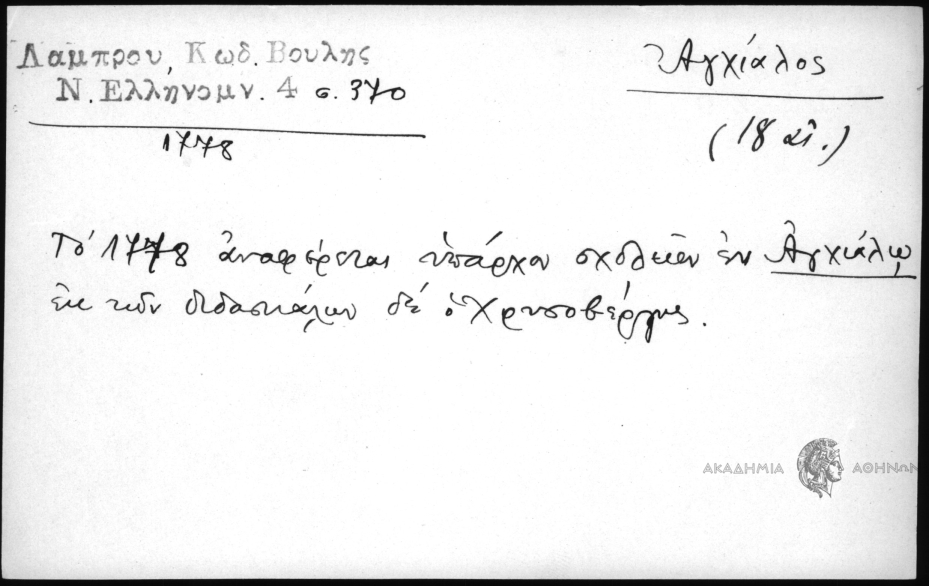 Λαμπρου, Κωδ. Βουλης
Ν. Ελληνομν. 4 σ. 370
1778
Ἀγχίαλος
(18 αἰ.)
Τό 1778 ἀναφέρεται ὑπάρχον σχολεῖον ἐν Ἀγχιάλῳ
ἐκ τῶν διδασκάλων δέ ὁ Χρυσοβέργης.
ΑΚΑΔΗΜΙΑ ΑΘΗΝΩΝ